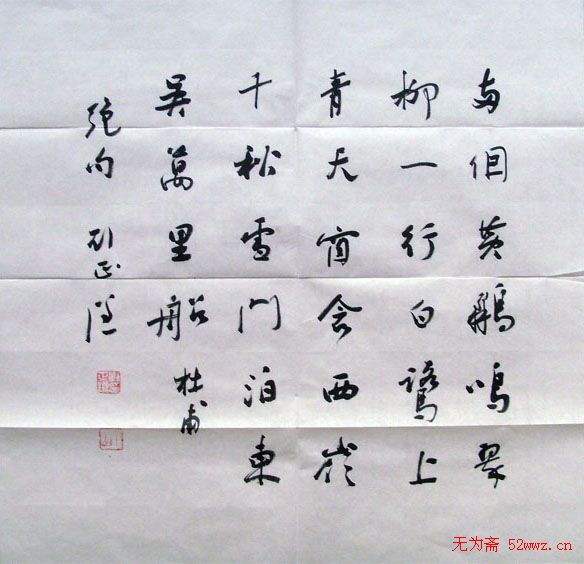 两個黄鸝鳴翠
柳一行白鷺上
青天窗含西嶺
千秋雪門泊東
吴萬里船 杜甫
絶句
无为斋 52wwz.cn